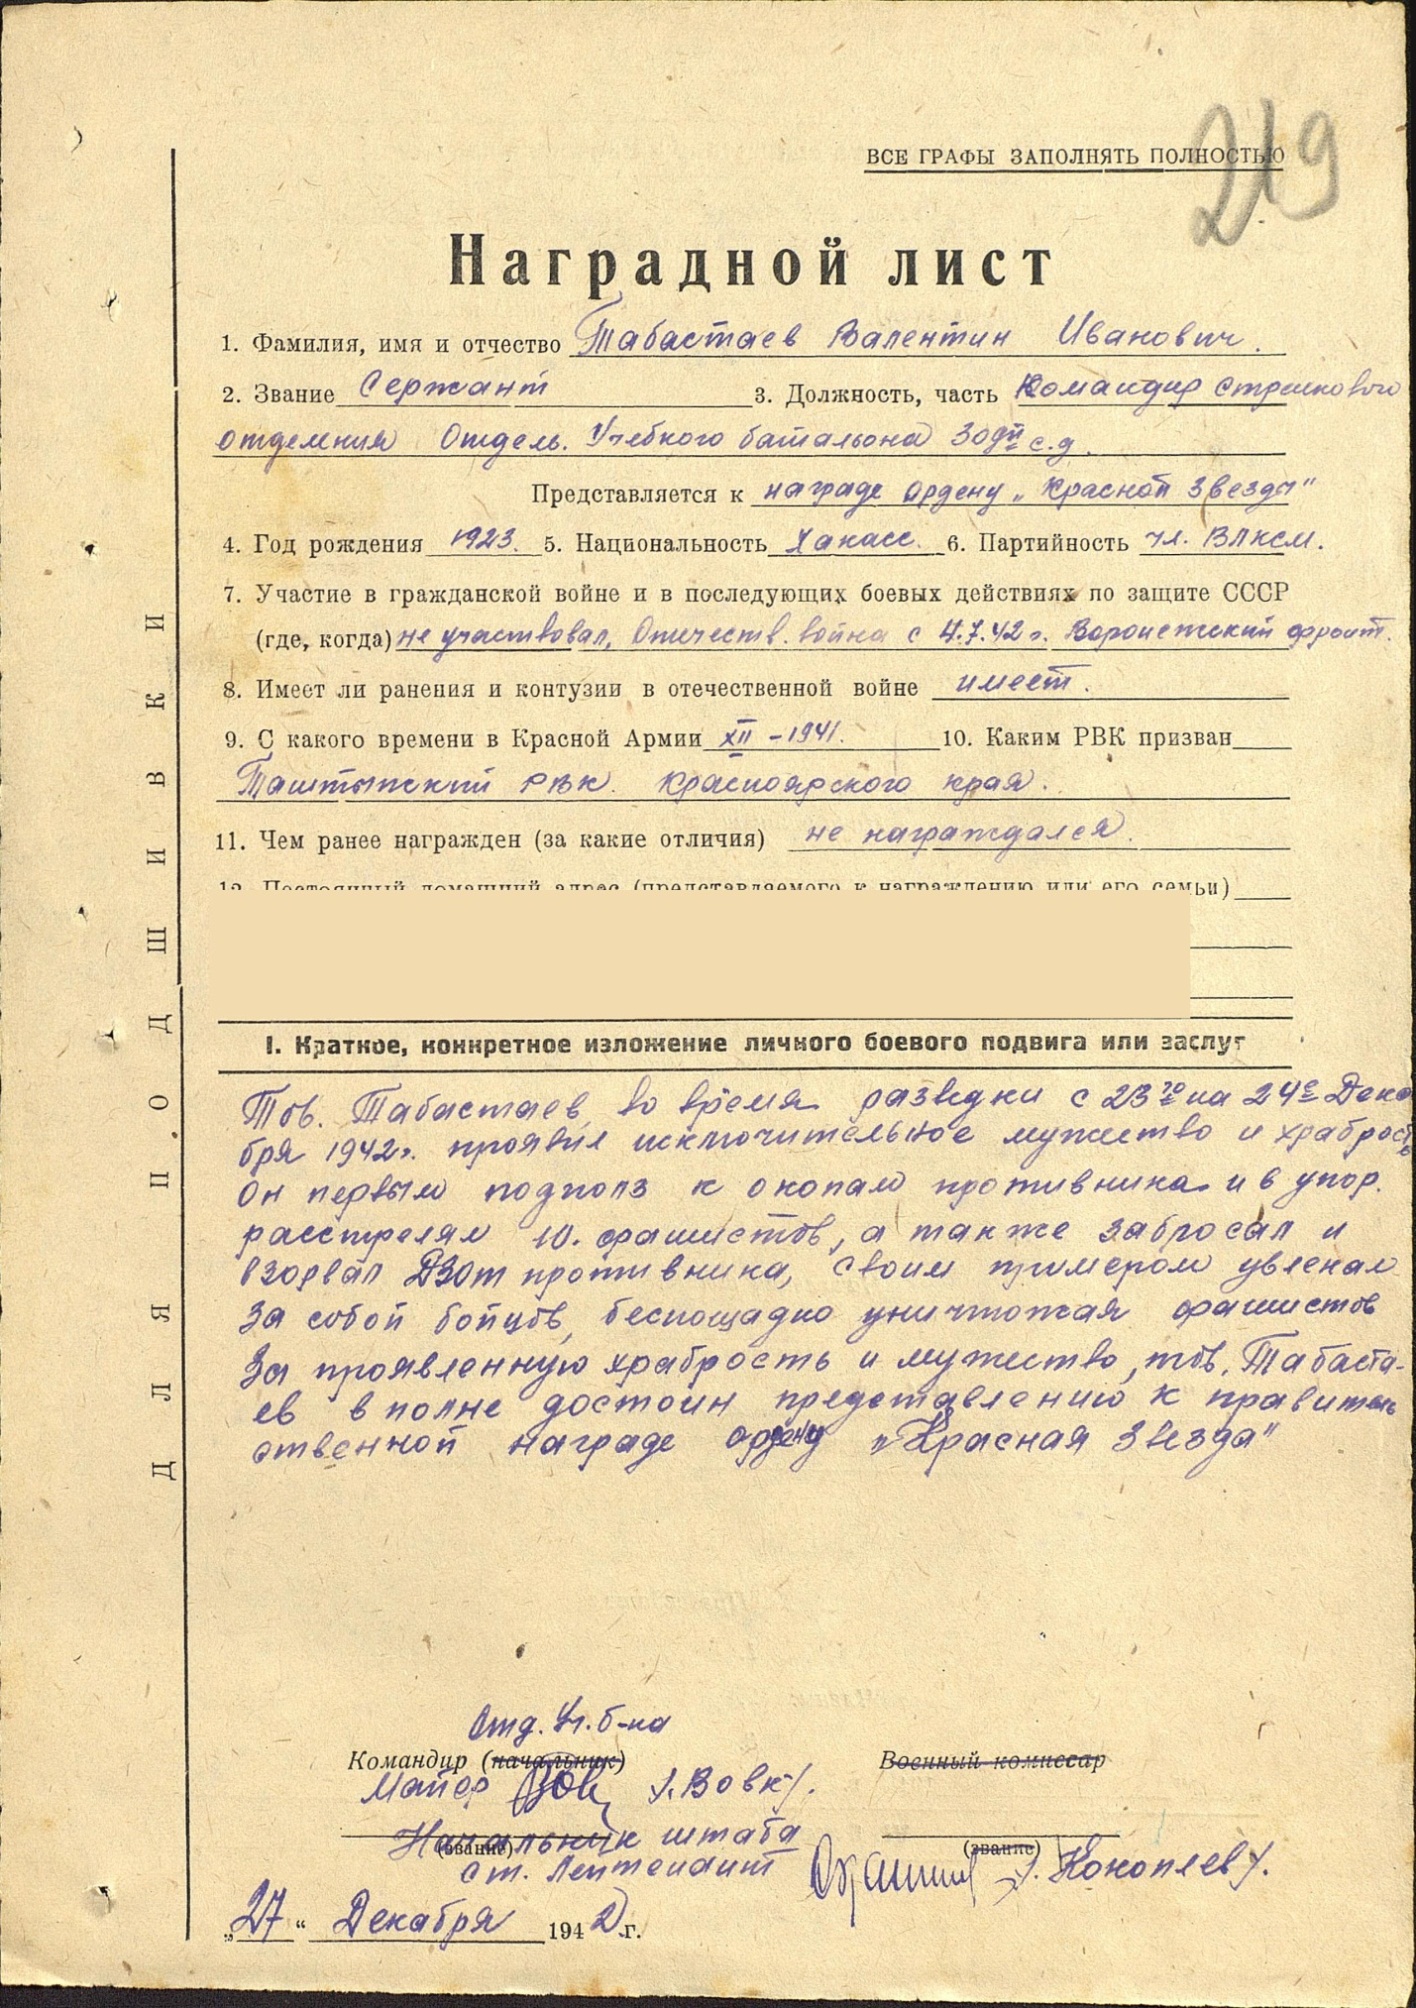 219
ВСЕ ГРАФЫ ЗАПОЛНЯТЬ ПОЛНОСТЬЮ
Наградной лист
1. Фамилия, имя и отчество Табастаев Валентин Иванович.
2. Звание Сержант 3. Должность, часть Командир стрелкового
отделния Отдель. Учебного батальона 309й с.д.
Представляется к награде ордену „Красной Звезды"
4. Год рождения 1923. 5. Национальность Хакасс. 6. Партийность чл. ВЛКСМ.
7. Участие в гражданской войне и в последующих боевых действиях по защите СССР
(где, когда) не участвовал, Отечеств. война с 4.7.42г. Воронежский фронт.
8. Имеет ли ранения и контузии в отечественной войне имеет.
9. С какого времени в Красной Армии XII-1941. 10. Каким РВК призван
Таштыпский РВК. Красноярского края.
11. Чем ранее награжден (за какие отличия) не награждался.
12. Постоянный домашний адрес (представляемого к награждению или его семьи)
I. Краткое, конкретное изложение личного боевого подвига или заслуг
Тов. Табастаев во время разведки с 23го на 24е Дека
бря 1942г. проявил исключительное мужество и храбрость
Он первым подполз к окопам противника и в упор.
расстрелял 10. фашистов, а также забросал и
взорвал ДЗОТ противника, своим примером увлекал
за собой бойцов, беспощадно уничтожая фашистов
За проявленную храбрость и мужество, тов. Табаста-
ев вполне достоин представлению к правитель
ственной награде ордену „Красная Звезда"
Отд. Уч. б-на
Командир (начальник) Военный комиссар
Майор /. Вовк/.
Начальник штаба
(звание) (звание)
ст. Лейтенант /. Коноплев/.
„27" Декабря 1942 г.
ДЛЯ ПОДШИВКИ